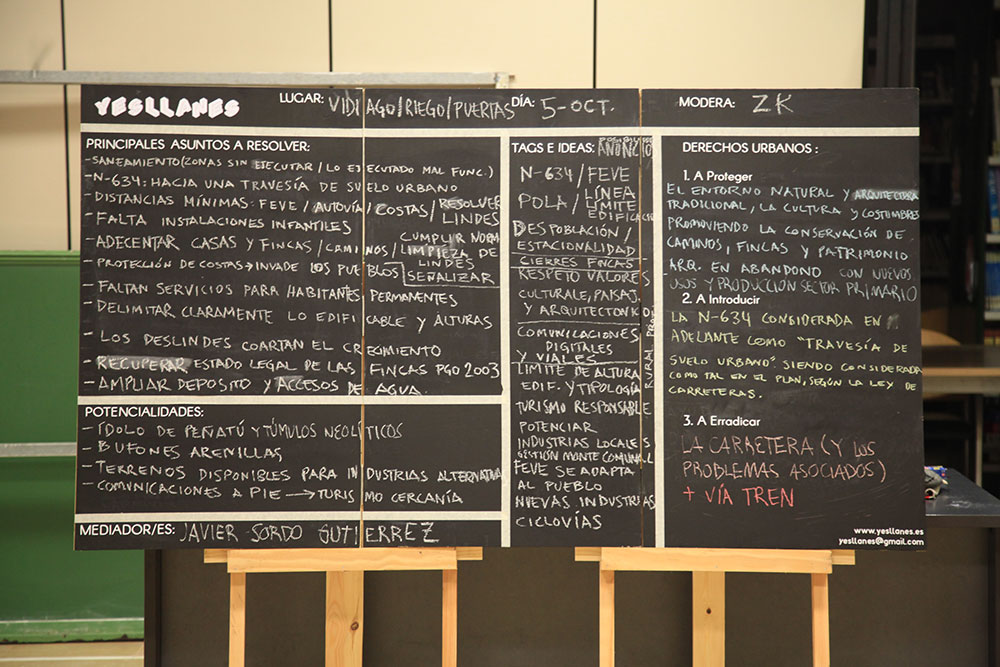 YESLLANES
LUGAR: VIDIAGO/RIEGO/PUERTAS
DÍA: 5-OCT.
MODERA: ZK
PRINCIPALES ASUNTOS A RESOLVER:
-SANEAMIENTO (ZONAS SIN EJECUTAR / LO EJECUTADO MAL FUNC.)
-N-634: HACIA UNA TRAVESÍA DE SUELO URBANO
-DISTANCIAS MÍNIMAS: FEVE / AUTOVÍA / COSTAS / RESOLVER LINDES
-FALTA INSTALACIONES INFANTILES
CUMPLIR NORM
-ADECENTAR CASAS Y FINCAS / CAMINOS / LIMPIEZA DE LINDES
-PROTECCIÓN DE COSTAS→INVADE LOS PUEBLOS SEÑALIZAR
-FALTAN SERVICIOS PARA HABITANTES PERMANENTES
-DELIMITAR CLARAMENTE LO EDIFICABLE Y ALTURAS
-LOS DESLINDES COARTAN EL CREGIMIENTO
-RECUPERAR ESTADO LEGAL DE LAS FINCAS PGO 2003
-AMPLIAR DEPOSITO Y ACCESOS DE AGUA.
POTENCIALIDADES:
-IDOLO DE PEÑATÚ Y TÚMULOS NEOLÍTICOS
-BUFONES ARENILLAS
-TERRENOS DISPONIBLES PARA INDUSTRIAS ALTERNATIVA
-COMUNICACIONES A PIE → TURISMO CERCANÍA
MEDIADOR/ES: JAVIER SORDO GUTIERREZ
TAGS E IDEAS: ANUNCIO
N-634 / FEVE
POLA / LÍNEA LÍMITE EDIFICACIÓ
DESPOBLACIÓN /
ESTACIONALIDAD
CIERRES FINCAS
RESPETO VALORES
CULTURALE, PAISAJ.
Y ARQUITECTONICO
COMUNICACIONES
DIGITALES
Y VIALES
LIMITE DE ALTURA
EDIF. Y TIPOLOGÍA
RURAL
TURISMO RESPONSABLE
POTENCIAR
INDUSTRIAS LOCALES
GESTIÓN MONTE COMUNAL
FEVE SE ADAPTA
AL PUEBLO
NUEVAS INDUSTRIAS
CICLOVÍAS
DERECHOS URBANOS:
1. A Proteger
EL ENTORNO NATURAL Y ARQUITECTURA
TRADICIONAL, LA CULTURA Y COSTUMBRES
PROMOVIENDO LA CONSERVACIÓN DE
CAMINOS, FINCAS Y PATRIMONIO
ARQ. EN ABANDONO CON NUEVOS
USOS Y PRODUCCIÓN SECTOR PRIMARIO
2. A Introducir
LA N-634 CONSIDERADA EN
ADELANTE COMO "TRAVESÍA DE
SUELO URBANO". SIENDO CONSIDERADA
COMO TAL EN EL PLAN, SEGÚN LA LEY DE
CARRETERAS.
3. A Erradicar
LA CARRETERA (Y LOS
PROBLEMAS ASOCIADOS)
+ VÍA TREN
www.yesllanes.es
yesllanes@gmail.com